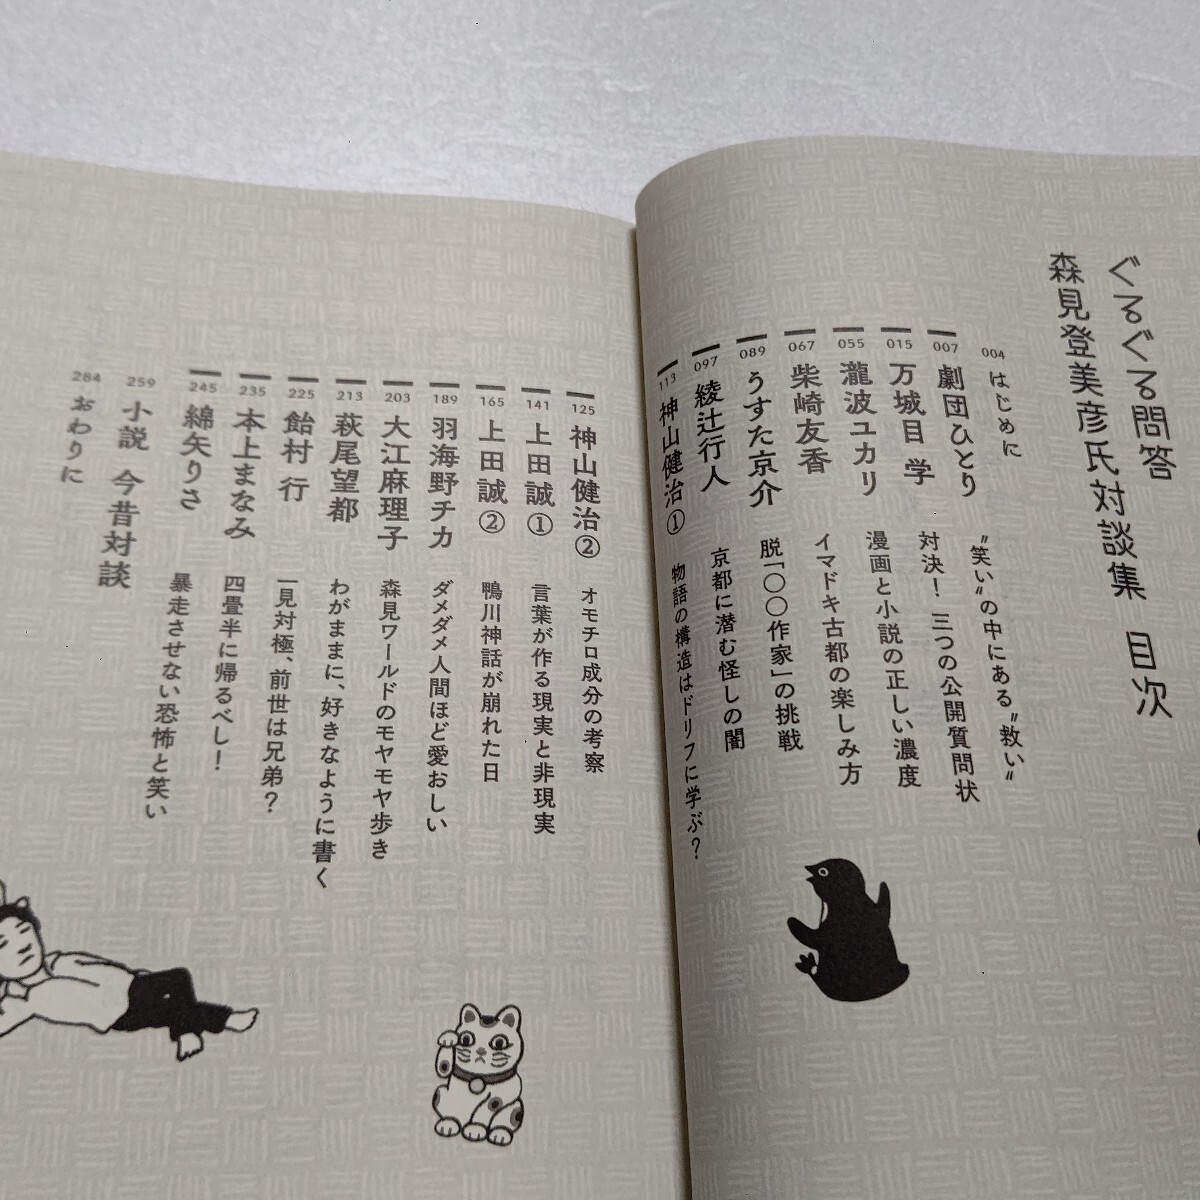 ぐるぐる問答
森見登美彦氏対談集 目次
004 はじめに
007 劇団ひとり “笑い”の中にある“救い”
015 万城目 学 対決! 三つの公開質問状
055 瀧波ユカリ 漫画と小説の正しい濃度
067 柴崎友香 イマドキ古都の楽しみ方
089 うすた京介 脱「○○作家」の挑戦
097 綾辻行人 京都に潜む怪しの闇
113 神山健治① 物語の構造はドリフに学ぶ?
125 神山健治② オモチロ成分の考察
141 上田誠① 言葉が作る現実と非現実
165 上田誠② 鴨川神話が崩れた日
189 羽海野チカ ダメダメ人間ほど愛おしい
203 大江麻理子 森見ワールドのモヤモヤ歩き
213 萩尾望都 わがままに、好きなように書く
225 飴村 行 一見対極、前世は兄弟?
235 本上まなみ 四畳半に帰るべし!
245 綿矢りさ 暴走させない恐怖と笑い
259 小説 今昔対談
284 おわりに